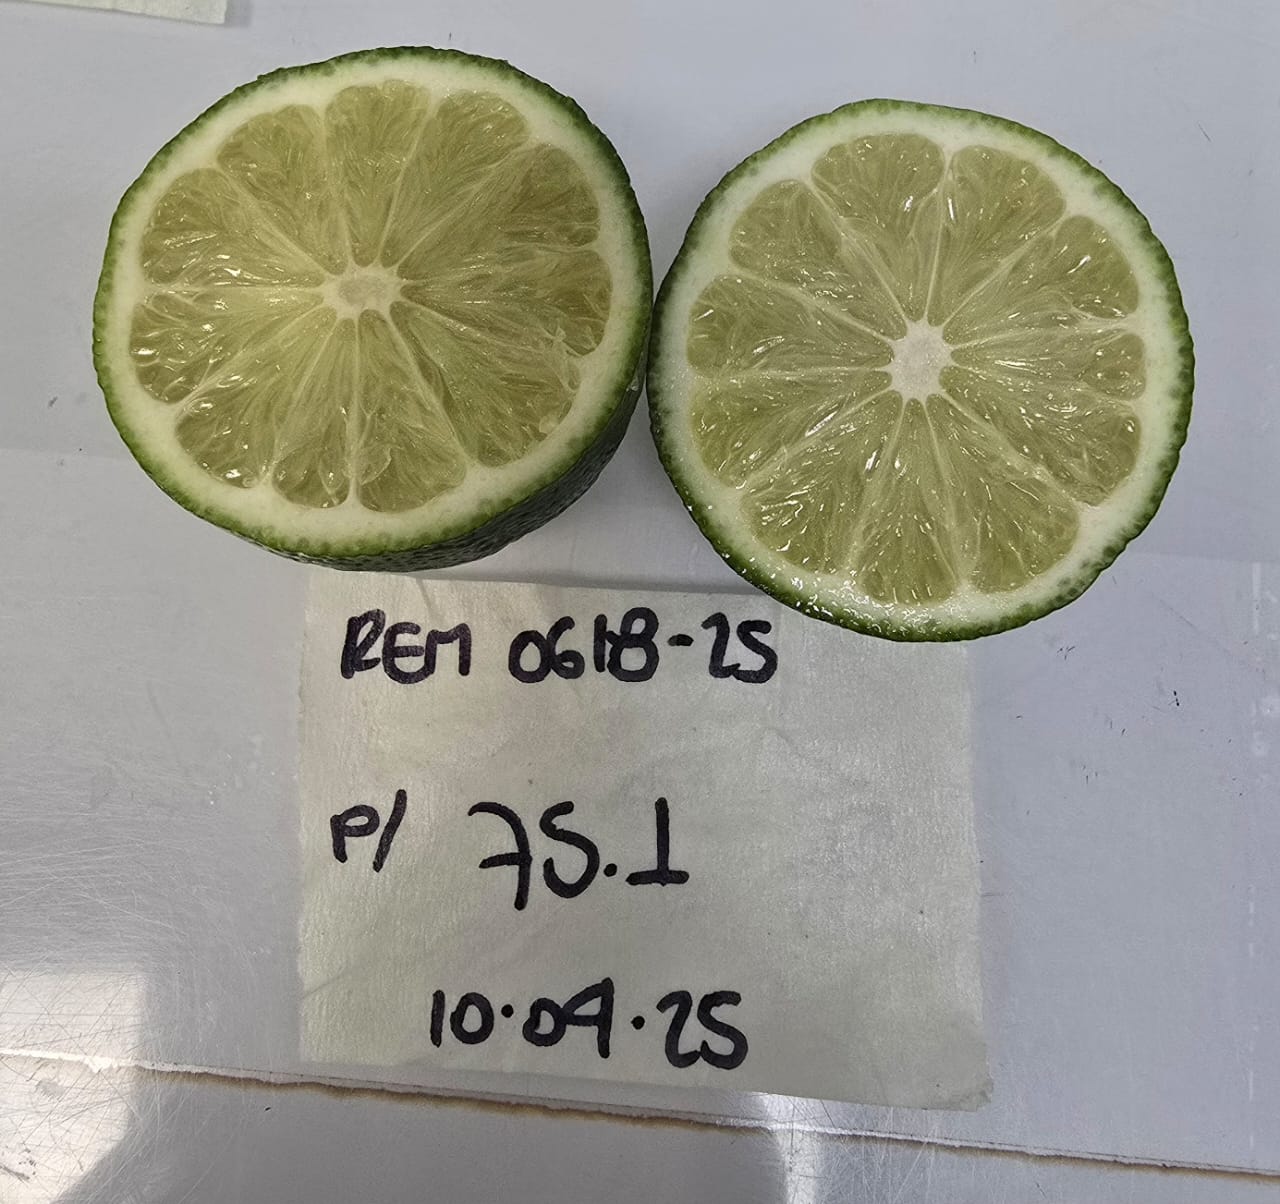 REM 0618-25
P/ 75.1
10.09.25